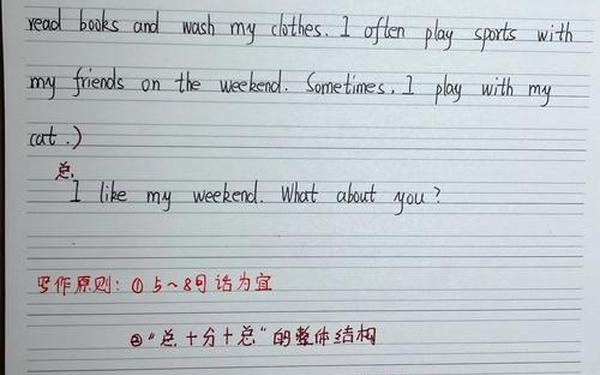 read books and wash my clothes. I often play sports with
my friends on the weekend. Sometimes. I play with my
cat.)
总.
I like my weekend. What about you?
写作原则: ① 5~8句话为宜
②"总+分+总"的整体结构